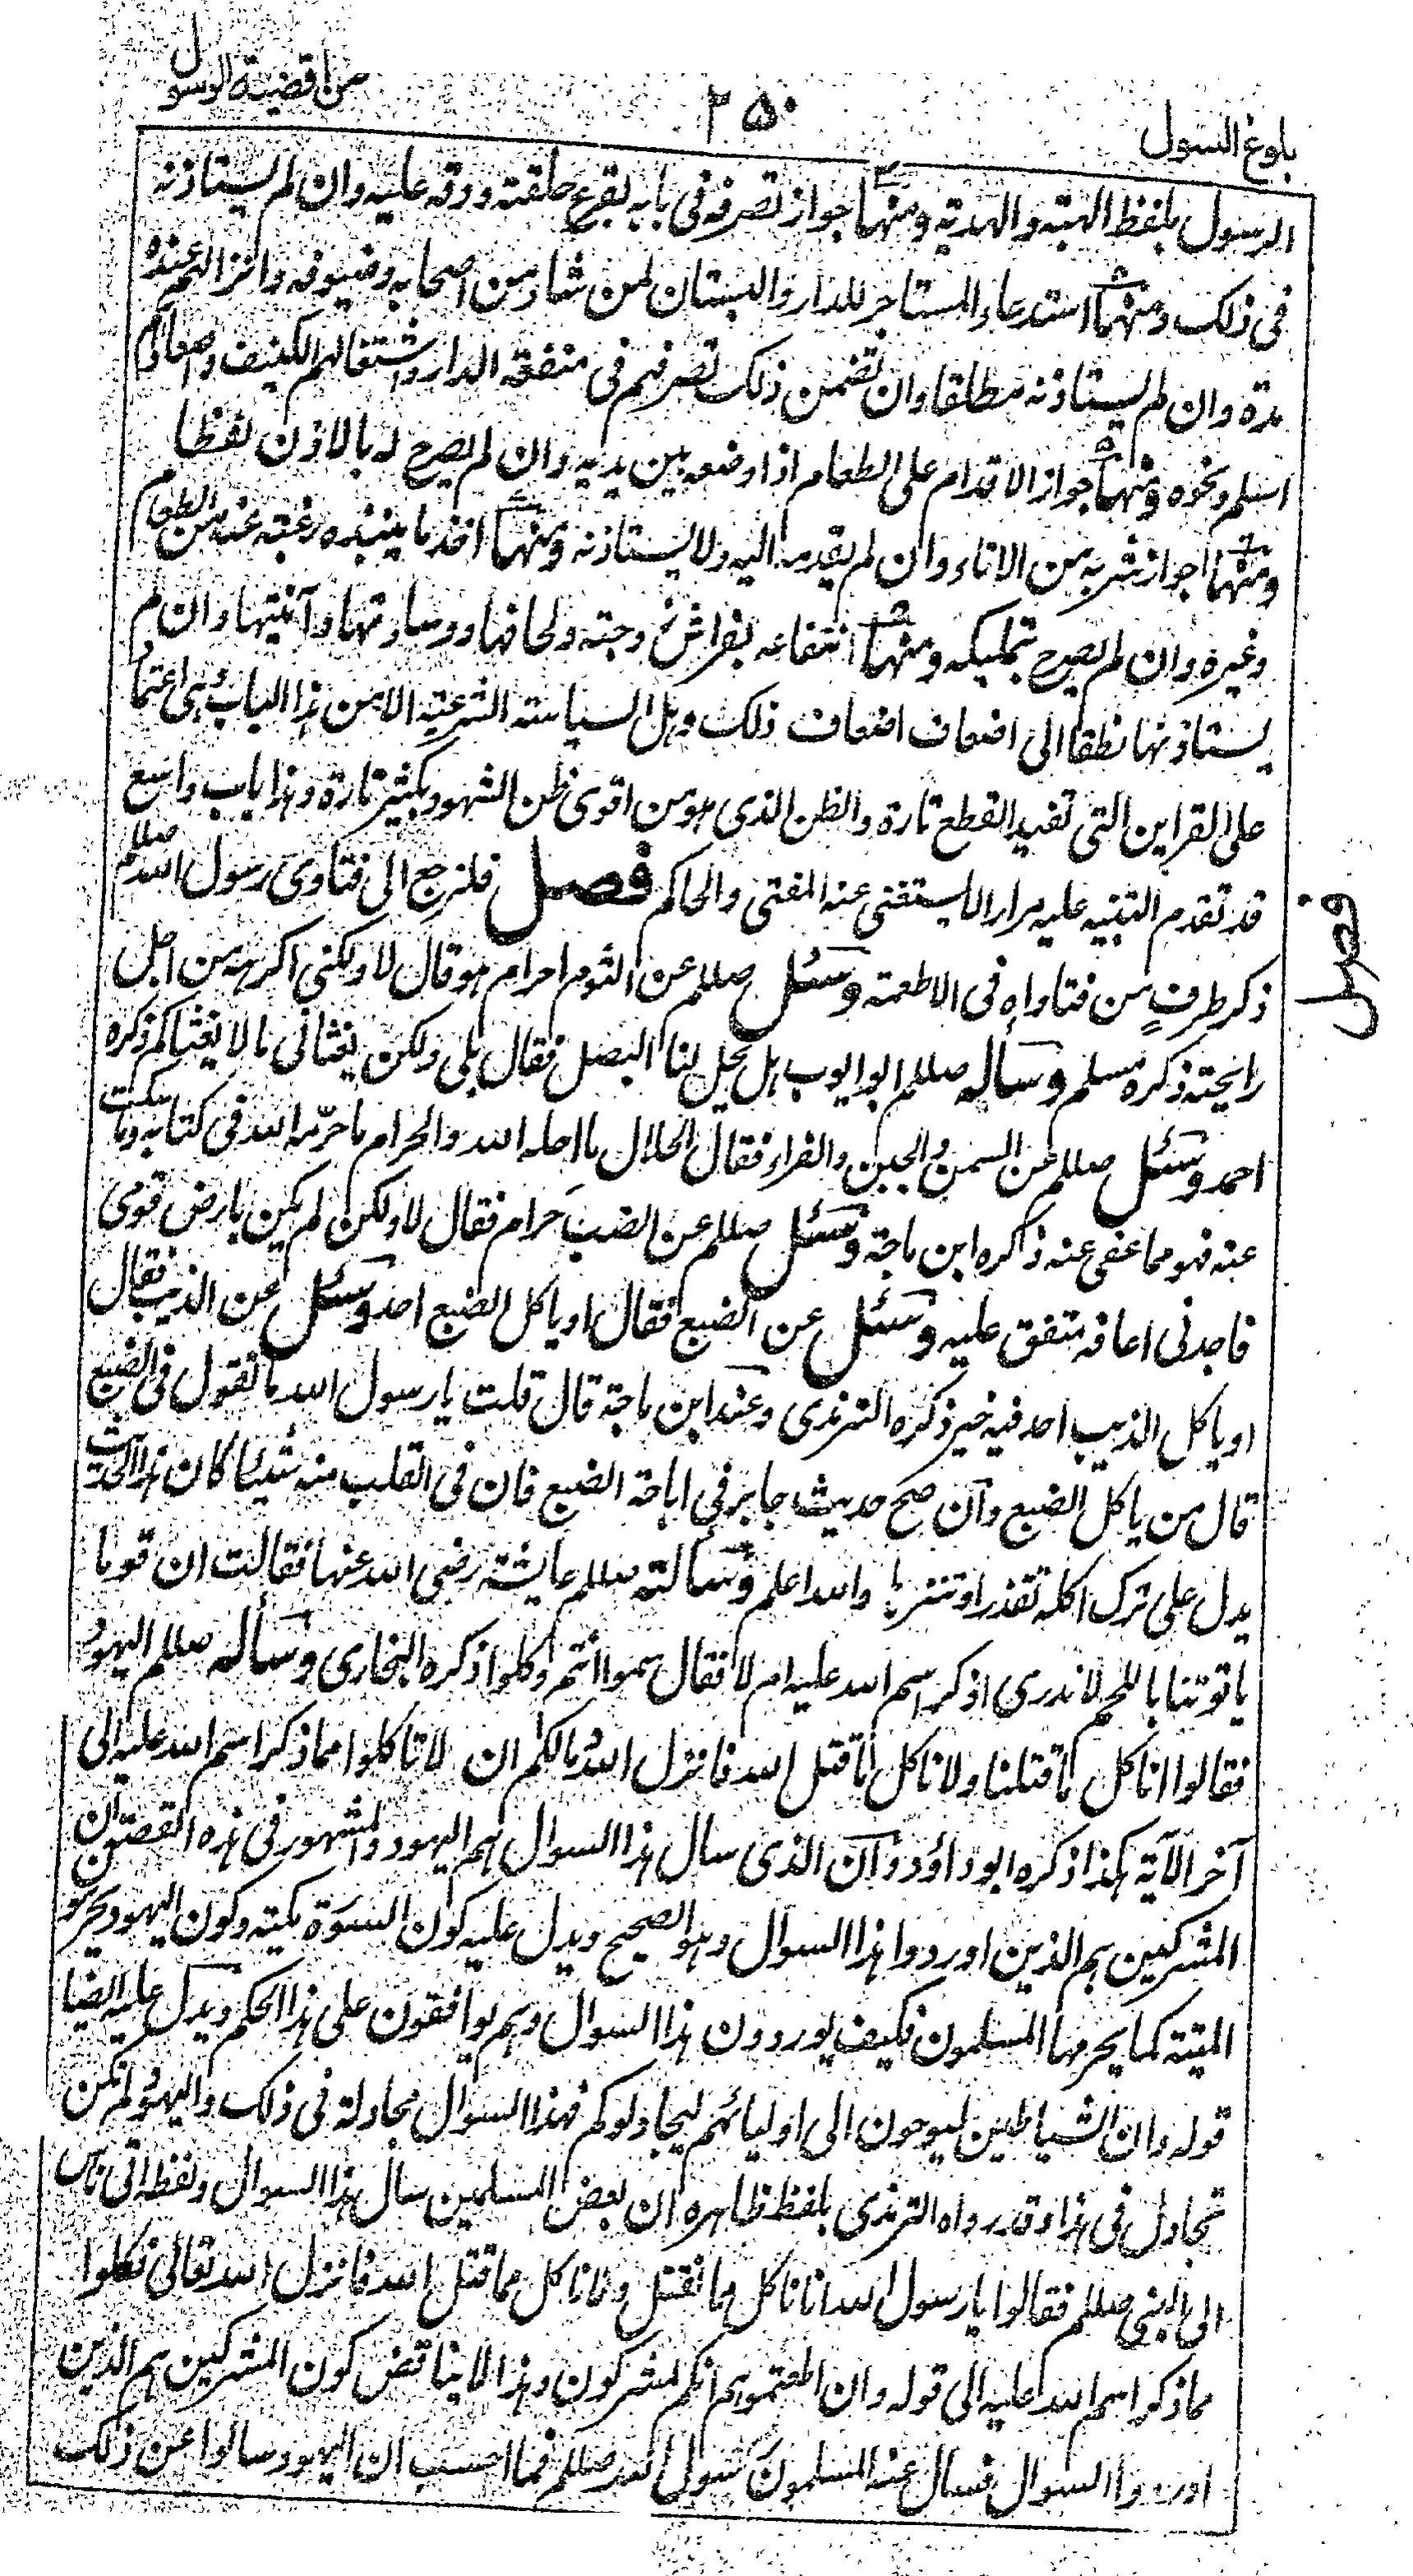 بلوغ السول
۲۵۰
من اقضیة الرسول
الرسول بلفظ الهبته والهدیته ومنها جواز تصرفه فی بابه بقرع حلقته ودقه علیه وان لم یستاذنه
فی ذلک ومنها استدعاء المستاجر للدار والبستان لمن شاء من اصحابه وضیوفه وانزالهم عنده
مدة وان لم یستاذنه مطلقا وان تضمن ذلک تصرفهم فی منفعة الدار واشتغالهم الکنیف واصعادهم
السلم ونحوه ومنها جواز الاقدام علی الطعام اذا وضعه بین یدیه وان لم یصرح له بالاذن لفظا
ومنها جواز شربه من الاناء وان لم یقدمه الیه ولا یستاذنه ومنها اخذ ما ینبذه رغبة عنه من الطعام
وغیره وان لم یصرح بتملیکه ومنها انتفاعه بفراش زوجته ولحافها ووسادتها وآنیتها وان لم
یستاذنها نطقا الی اضعاف اضعاف ذلک وهل السیاسته الشرعیته الا من هذا الباب هی اعتماد
علی القراین التی تفید القطع تارة والظن الذی هو من اقوی ظن الشهود بکثیر تارة وهذا باب واسع
قد تقدم التنبیه علیه مرارا لا یستغنی عنه المفتی والحاکم فصل فلنرجع الی فتاوی رسول الله صللم
فصل
ذکر طرفٍ من فتاواه فی الاطعمته وسئل صللم عن الثوم احرام هو قال لا ولکنی اکرهه من اجل
رایحته ذکره مسلم وسأله صللم ابو ایوب هل یحل لنا البصل فقال بلی ولکن یغشانی ما لا یغشاکم ذکره
احمد وسئل صللم عن السمن والجبن والفراء فقال الحلال ما احله الله والحرام ما حرّمه الله فی کتابه وما سکت
عنه فهو مما عفی عنه ذکره ابن ماجة وسئل صللم عن الضب حرام فقال لا ولکن لم یکن بارض قومی
فاجدنی اعافه متفق علیه وسئل عن الضبع فقال او یاکل الضبع احد وسئل عن الذیب فقال
او یاکل الذیب احد فیه خیر ذکره الترمذی وعند ابن ماجة قال قلت یا رسول الله ما تقول فی الضبع
قال من یاکل الضبع وان صح حدیث جابر فی اباحة الضبع فان فی القلب منه شیئا کان هذا الحدیث
یدل علی ترک اکله تقذرا وتنزها والله اعلم وسألته صللم عایشة رضی الله عنها فقالت ان قوما
یاتوننا باللحم لا ندری اذکر اسم الله علیه ام لا فقال سموا انتم وکلوا ذکره البخاری وسأله صللم الیهود
فقالوا انا کل ما قتلنا ولا ناکل ما قتل الله فانزل الله ما لکم ان لا تاکلوا مما ذکر اسم الله علیه الی
آخر الآیة هکذا ذکره ابو داؤد وان الذی سال هذا السوال هم الیهود والمشهور فی هذه القصة ان
المشرکین هم الذین اوردوا هذا السوال وهو الصحیح ویدل علیه کون السورة مکیته وکون الیهود یحرمون
المیتة کما یحرمها المسلمون فکیف یوردون هذا السوال وهم یوافقون علی هذا الحکم ویدل علیه ایضا
قوله وان الشیاطین لیوحون الی اولیائهم لیجادلوکم فهذا السوال مجادلة فی ذلک والیهود لم تکن
تجادل فی هذا وقد رواه الترمذی بلفظ ظاهره ان بعض المسلمین سال هذا السوال ولفظه اتی ناس
الی النبی صللم فقالوا یا رسول الله اناناکل ما نقتل ولا ناکل مما قتل الله فانزل الله تعالی فکلوا
مما ذکر اسم الله علیه الی قوله وان اطعتموهم انکم لمشرکون وهذا لا یناقض کون المشرکین هم الذین
اوردوا السوال فسال عنه المسلمون رسول الله صللم فما احسب ان الیهود سالوا عن ذلک